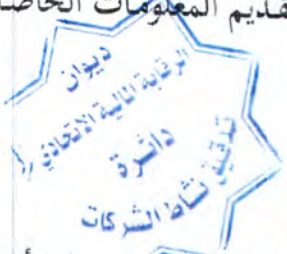 تقديم المعلومات الخاصة
ديوان
الرقابة المالية الاتحادي
دائرة
تدقيق نشاط الشركات